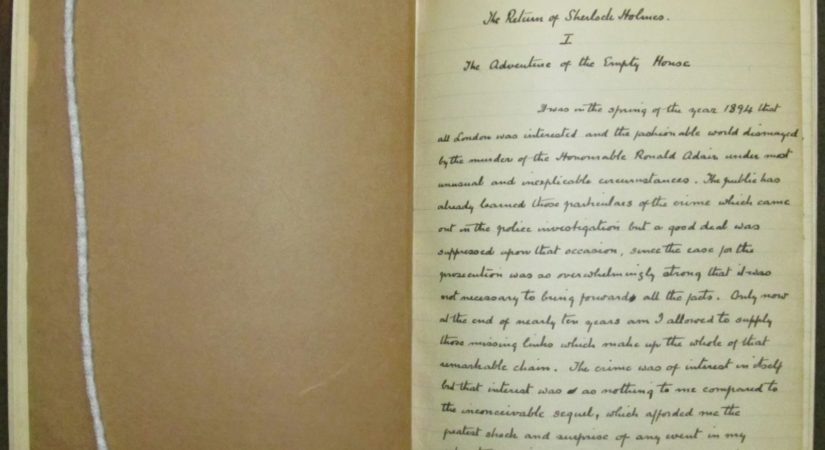 The Return of Sherlock Holmes.
I
The Adventure of the Empty House
It was in the spring of the year 1894 that
all London was interested and the fashionable world dismayed
by the murder of the Honourable Ronald Adair under most
unusual and inexplicable circumstances. The public has
already learned those particulars of the crime which came
out in the police investigation but a good deal was
suppressed upon that occasion, since the case for the
prosecution was so overwhelmingly strong that it was
not necessary to bring forward all the facts. Only now
at the end of nearly ten years am I allowed to supply
those missing links which make up the whole of that
remarkable chain. The crime was of interest in itself
but that interest was as nothing to me compared to
the inconceivable sequel, which afforded me the
greatest shock and surprise of any event in my